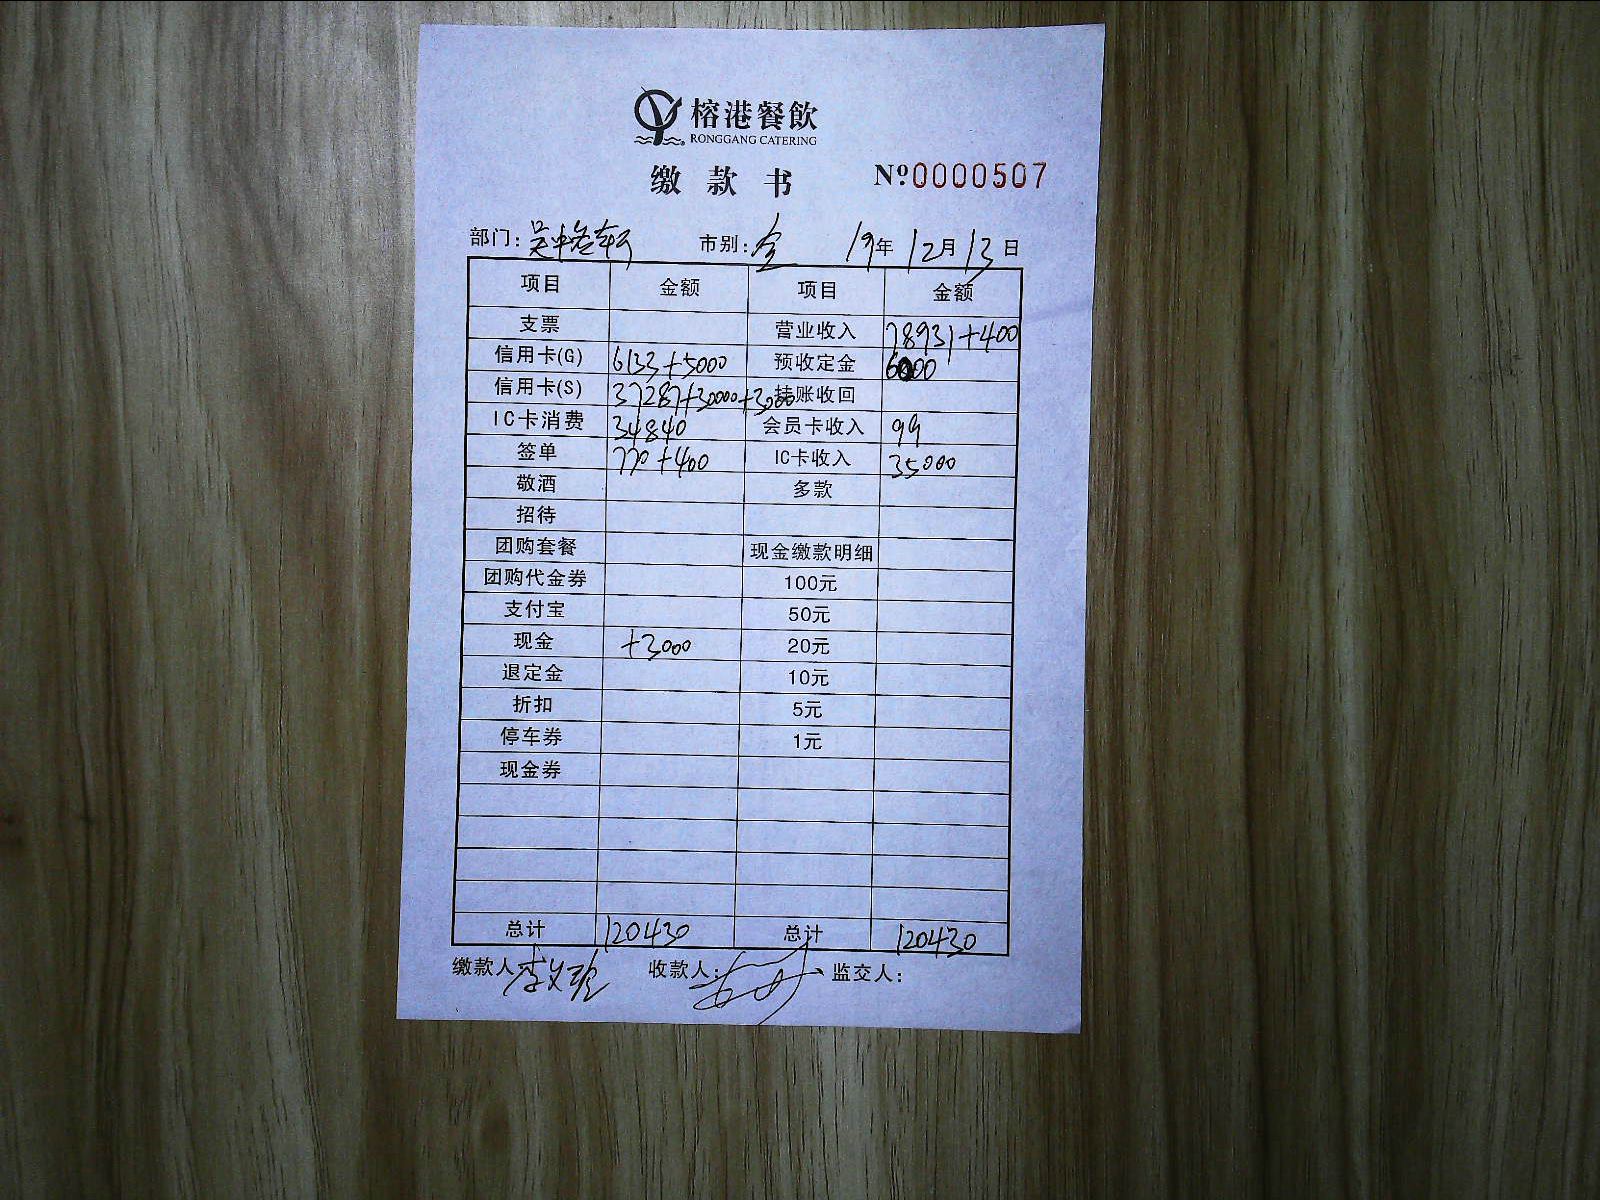 榕港餐飲
RONGGANG CATERING
缴款书 Nº0000507
部门: 吴中 市别: 全 19年12月13日
项目 金额 项目 金额
支票 营业收入 78931+400
信用卡(G) 6133+5000 预收定金 6000
信用卡(S) 37287+30000+3000 挂账收回
IC卡消费 34840 会员卡收入 99
签单 770+400 IC卡收入 35000
敬酒 多款
招待
团购套餐 现金缴款明细
团购代金券 100元
支付宝 50元
现金 +3000 20元
退定金 10元
折扣 5元
停车券 1元
现金券
总计 120430 总计 120430
缴款人 收款人: 监交人: